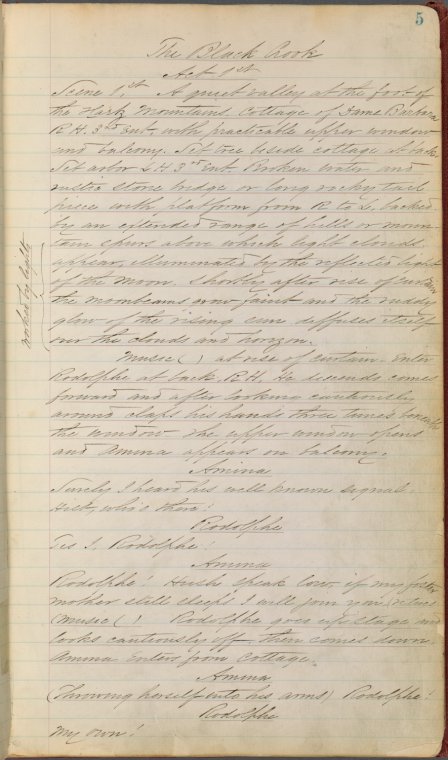 5
The Black Crook
Act 1st
Scene 1st. A quiet valley at the foot of
the Hartz Mountains. Cottage of Dame Barbara
R.H. 3rd Ent. with practicable upper window
and balcony. Set tree beside cottage at back
Set arbor L.H. 3rd Ent. Broken water and
rustic stone bridge or long rocky
piece with platform from R to L, backed
by an extended range of hills or moun-
tain spurs above which light clouds
appear, illuminated by the reflected light
of the moon. Shortly after rise of curtain
the moonbeams grow faint and the ruddy
glow of the rising sun diffuses itself
over the clouds and horizon.
worked by lights
Music ( ) at rise of curtain. Enter
Rodolphe at back, R.H. He descends comes
forward and after looking cautiously
around claps his hands three times beneath
the window. The upper window opens
and Amina appears on balcony.
Amina
Surely I heard his well known signal.
Hist, who's there!
Rodolphe
Tis I, Rodolphe!
Amina
Rodolphe! Hush! speak low. if my foster
mother still sleeps I will join you
(Music ( ) Rodolphe goes up stage and
looks cautiously off then comes down.
Amina Enters from Cottage.
Amina
(Throwing herself into his arms) Rodolphe!
Rodolphe
My own!